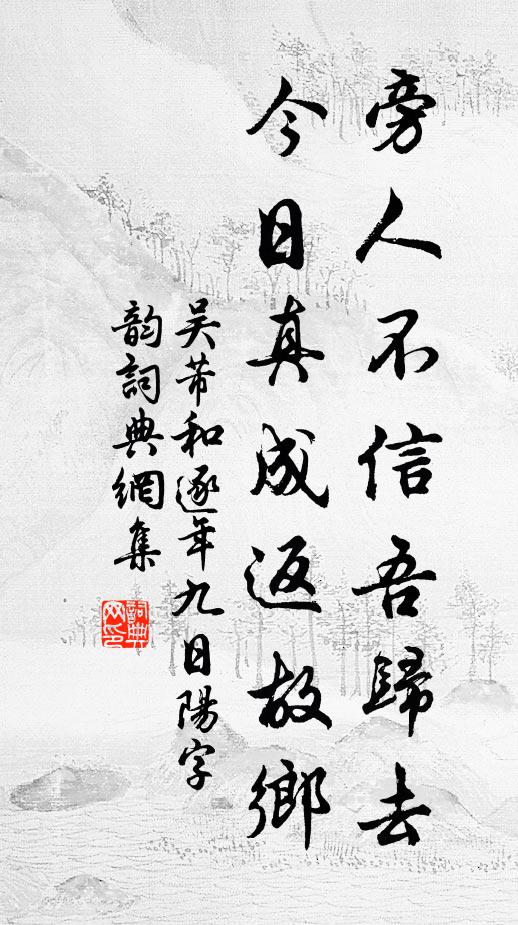 旁人不信吾歸去
今日真成返故鄉
吴芾和逐年九日陽字
韵詞典網集
詞典網印